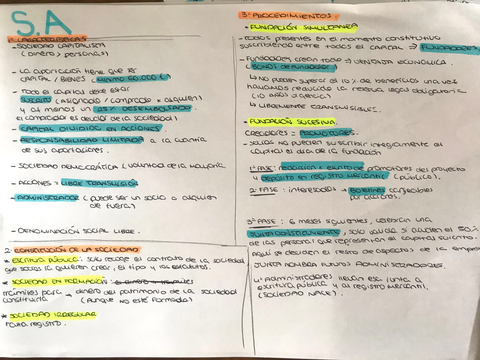 S.A
1. CARACTERÍSTICAS
- SOCIEDAD CAPITALISTA
(DINERO > PERSONAS)
- LA APORTACIÓN TIENE QUE SER
CAPITAL / BIENES MÍNIMO 60.000 €
- TODO EL CAPITAL DEBE ESTAR
SUSCRITO (ASIGNADO / COMPRADO x ALGUIEN)
Y AL MENOS 25% DESEMBOLSADO
(EL COMPRADOR ES DEUDOR DE LA SOCIEDAD)
- CAPITAL DIVIDIDO EN ACCIONES
- RESPONSABILIDAD LIMITADA A LA CUANTÍA
DE SUS APORTACIONES.
- SOCIEDAD DEMOCRÁTICA (VOLUNTAD DE LA MAYORÍA)
- ACCIONES > LIBRE TRANSMISIÓN
- ADMINISTRADOR (PUEDE SER UN SOCIO O ALGUIEN
DE FUERA)
- DENOMINACIÓN SOCIAL LIBRE.
2. CONSTITUCIÓN DE LA SOCIEDAD
* ESCRITURA PÚBLICA: SOLO RECOGE EL CONTRATO DE LA SOCIEDAD
QUE SOCIOS LA QUIEREN CREAR, EL TIPO Y LOS ESTATUTOS.
* SOCIEDAD EN FORMACIÓN:
TRÁMITES PARA → DINERO DEL PATRIMONIO DE LA SOCIEDAD
CONSTITUIRLA (AUNQUE NO ESTÉ FORMADA)
* SOCIEDAD IRREGULAR
FALTA REGISTRO.
3. PROCEDIMIENTOS
- FUNDACIÓN SIMULTÁNEA
- TODOS PRESENTES EN EL MOMENTO CONSTITUTIVO
SUSCRIBIENDO ENTRE TODOS EL CAPITAL → FUNDADORES
- FUNDADORES CREAN TODO → VENTAJA ECONÓMICA
BONOS DE FUNDADOR
↳ NO PUEDEN SUPERAR EL 10% DE BENEFICIOS UNA VEZ
HAYAMOS DEDUCIDO LA RESERVA LEGAL OBLIGATORIA
(10 AÑOS MÁXIMO)
↳ LIBREMENTE TRANSMISIBLES.
- FUNDACIÓN SUCESIVA
CREADORES = PROMOTORES
- SOCIOS NO PUEDEN SUSCRIBIR ÍNTEGRAMENTE EL
CAPITAL EL DÍA DE LA FUNDACIÓN
1ª FASE: REDACCIÓN x ESCRITO DE PROMOTORES DEL PROYECTO
Y DEPÓSITO EN REGISTRO MERCANTIL (PÚBLICO).
2ª FASE: INTERESADOS → BOLETINES CANJEADOS
POR ACCIONES.
3ª FASE: 6 MESES SIGUIENTES, CELEBRAN UNA
JUNTA CONSTITUYENTE, SOLO VÁLIDA SI ACUDEN EL 50%
DE LAS PERSONAS QUE REPRESENTAN EL CAPITAL SUSCRITO.
AQUÍ SE DECIDEN EL RESTO DE ASPECTOS DE LA EMPRESA
JUNTA NOMBRA NUEVOS ADMINISTRADORES.
↳ ADMINISTRADORES LLEVAN ESE JUNTA A
ESCRITURA PÚBLICA Y AL REGISTRO MERCANTIL
(SOCIEDAD NACE).